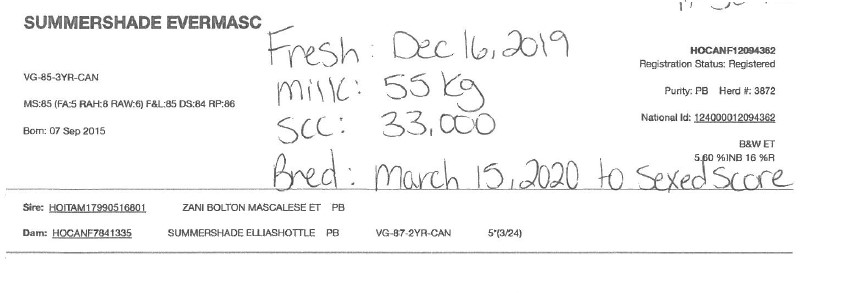 SUMMERSHADE EVERMASC
Fresh: Dec 16, 2019
HOCANF12094362
Registration Status: Registered
VG-85-3YR-CAN
Milk: 55 kg
Purity: PB Herd #: 3872
MS:85 (FA:5 RAH:8 RAW:6) F&L:85 DS:84 RP:86
SCC: 33,000
National Id: 124000012094362
Born: 07 Sep 2015
B&W ET
5.60 %INB 16 %R
Bred: March 15, 2020 to Sexed Score
Sire: HOITAM17990516801 ZANI BOLTON MASCALESE ET PB
Dam: HOCANF7841335 SUMMERSHADE ELLIASHOTTLE PB VG-87-2YR-CAN 5*(3/24)